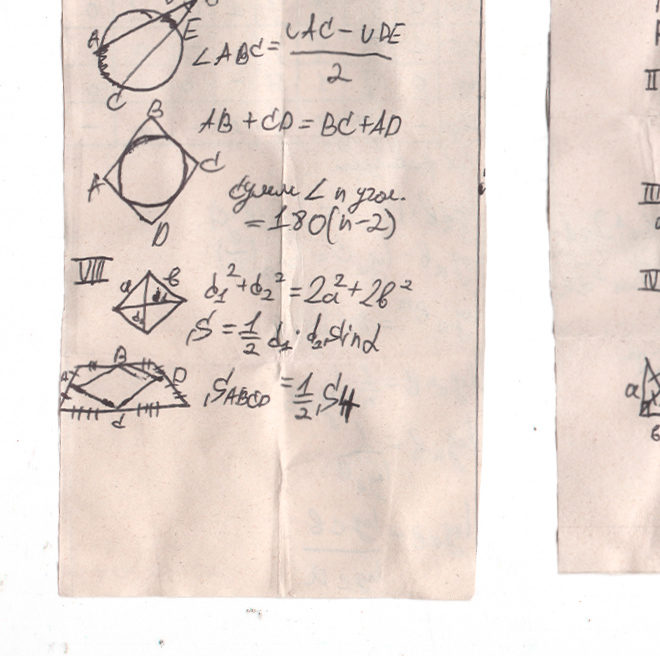 ∠ABC = (∪AC − ∪DE) / 2
A
E
C
AB + CD = BC + AD
B
A
C
D
сумм ∠ n угол.
= 180(n-2)
VIII
a b
d₁² + d₂² = 2a² + 2b²
S = 1/2 d₁ · d₂ sinα
B
A D
C
S_ABCD = 1/2 S
II
III
IV
a